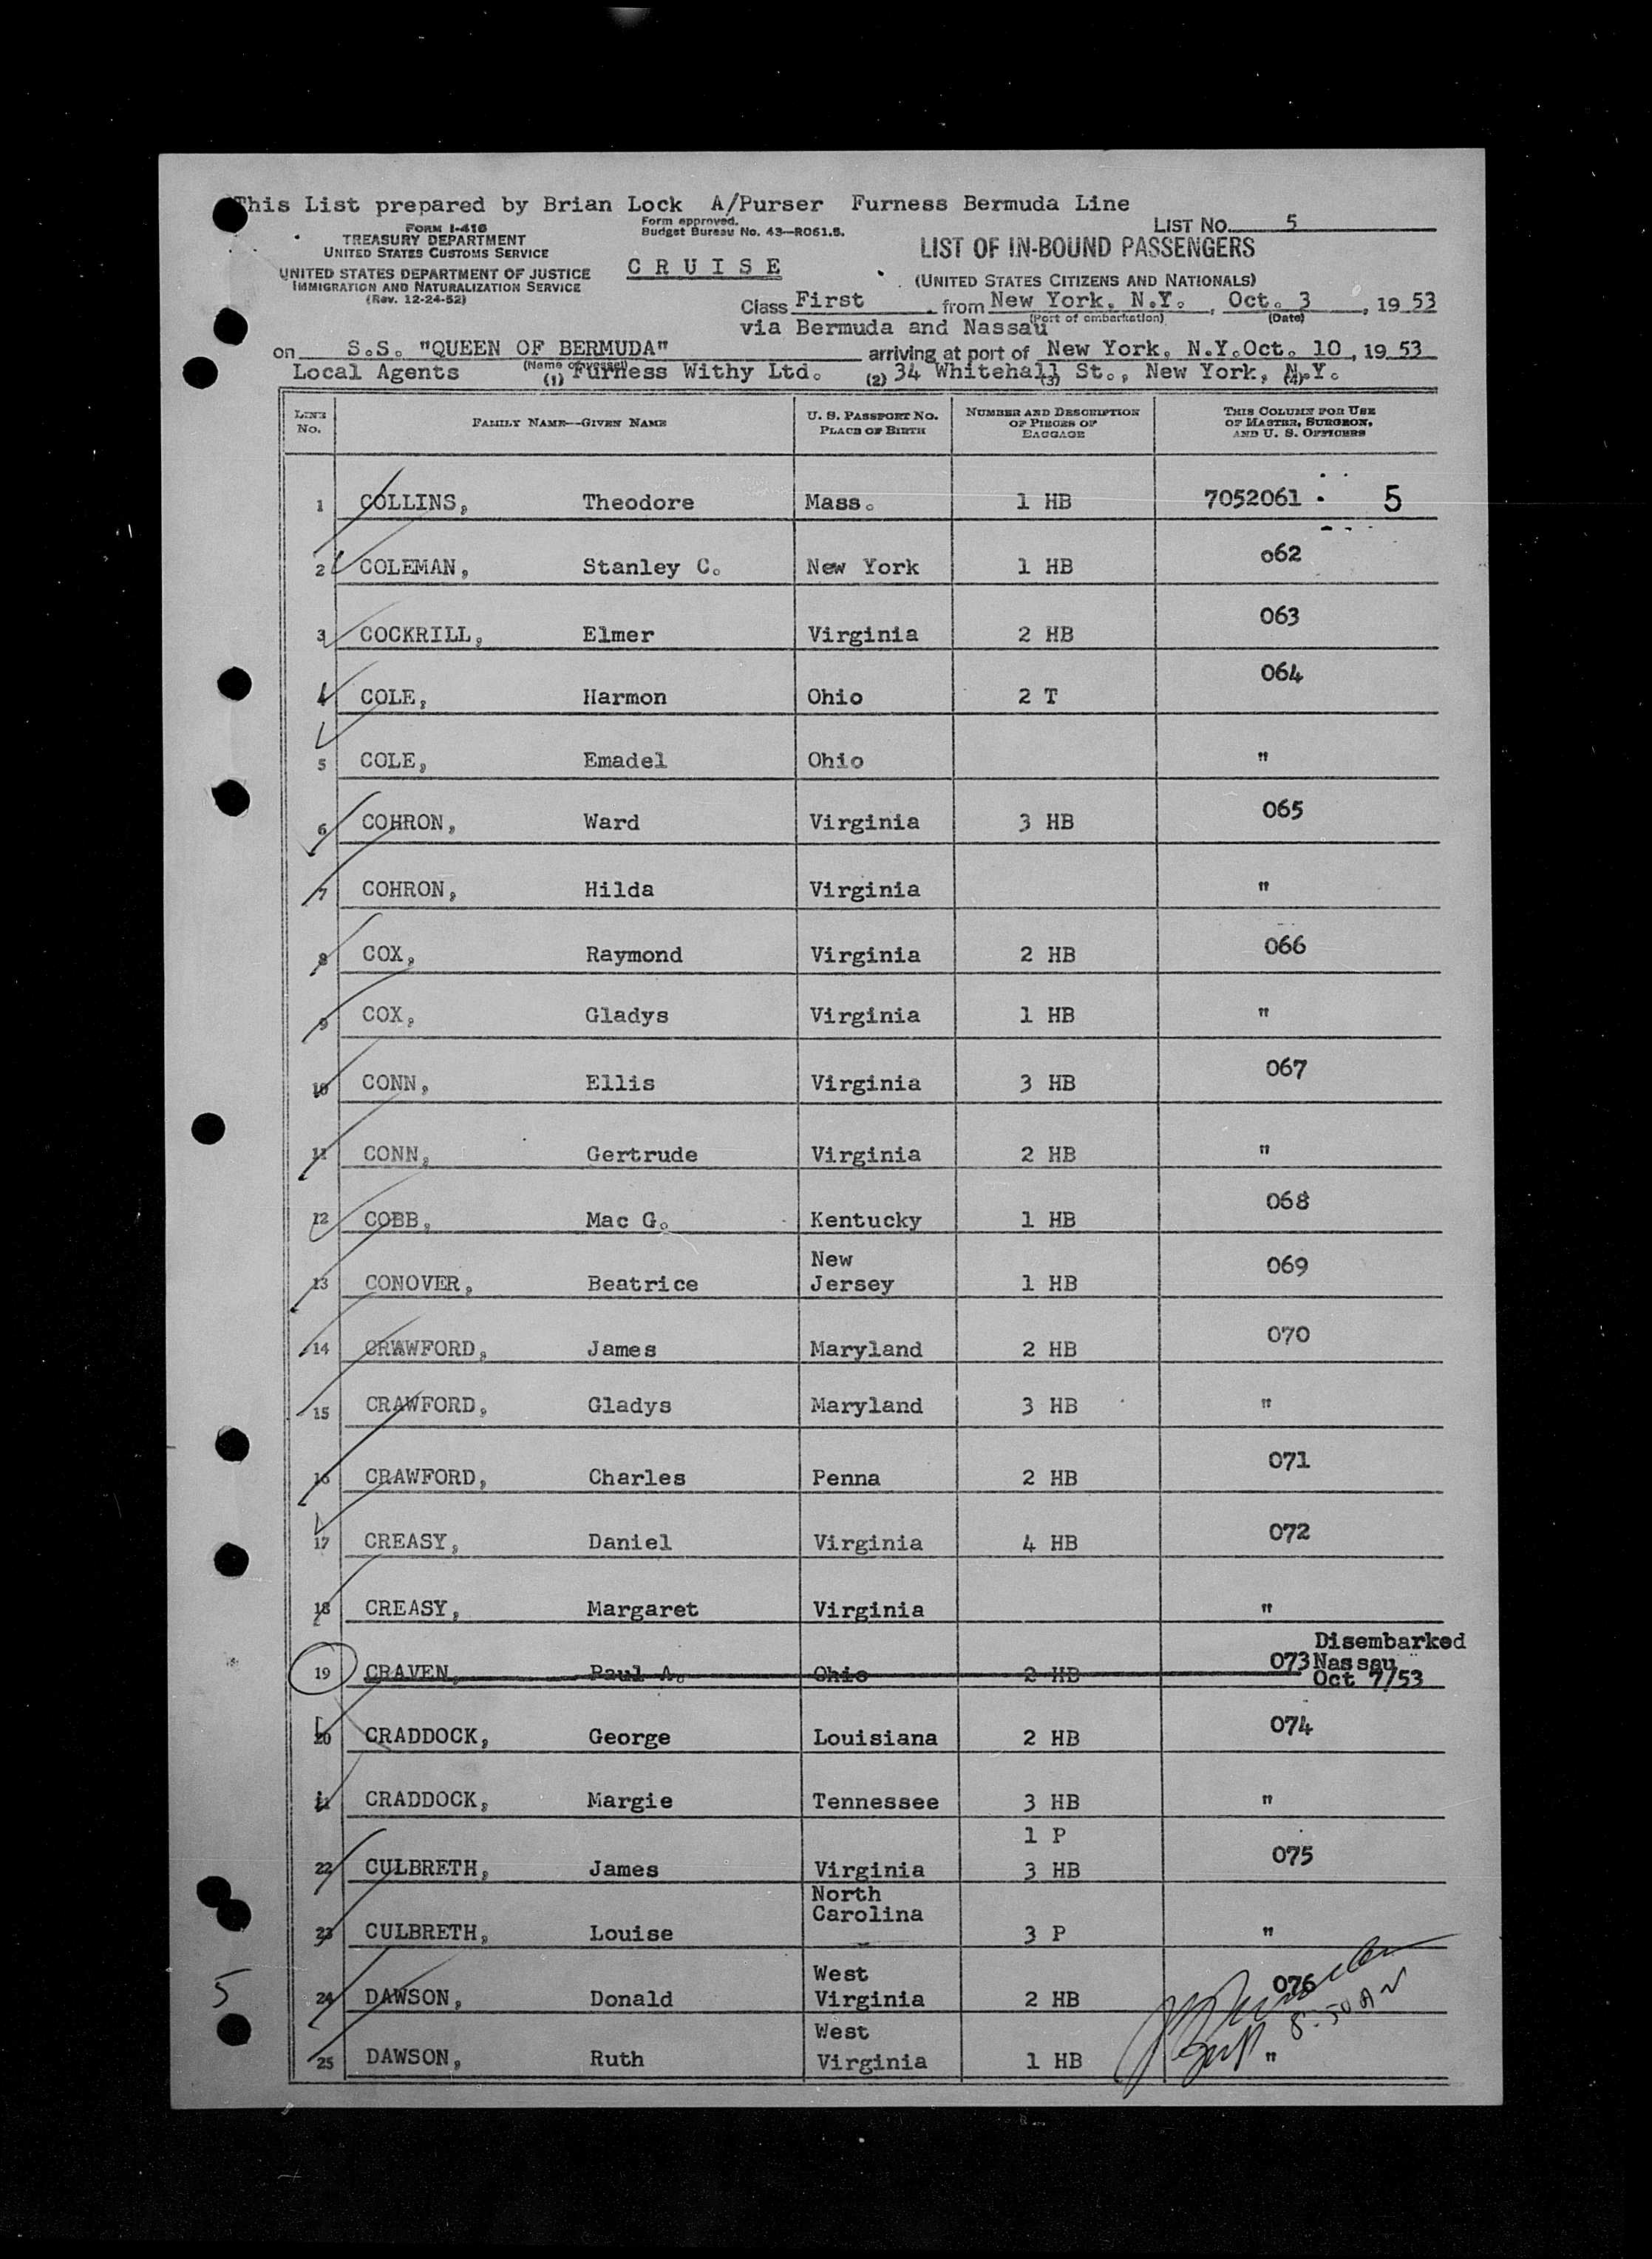 This List prepared by Brian Lock A/Purser Furness Bermuda Line
FORM I-416
TREASURY DEPARTMENT
UNITED STATES CUSTOMS SERVICE
UNITED STATES DEPARTMENT OF JUSTICE
IMMIGRATION AND NATURALIZATION SERVICE
(Rev. 12-24-52)
Form approved.
Budget Bureau No. 43—R061.5.
CRUISE
LIST NO. 5
LIST OF IN-BOUND PASSENGERS
(UNITED STATES CITIZENS AND NATIONALS)
Class First from New York, N.Y., Oct. 3, 19 53
(Port of embarkation) (Date)
via Bermuda and Nassau
on S.S. "QUEEN OF BERMUDA" arriving at port of New York, N.Y. Oct. 10, 19 53
(Name of vessel)
Local Agents (1) Furness Withy Ltd. (2) 34 Whitehall (3) St., New York, N.Y. (4)
LINE No. FAMILY NAME—GIVEN NAME U. S. PASSPORT NO. PLACE OF BIRTH NUMBER AND DESCRIPTION OF PIECES OF BAGGAGE THIS COLUMN FOR USE OF MASTER, SURGEON, AND U. S. OFFICERS
1 COLLINS, Theodore Mass. 1 HB 7052061 5
2 COLEMAN, Stanley C. New York 1 HB 062
3 COCKRILL, Elmer Virginia 2 HB 063
4 COLE, Harmon Ohio 2 T 064
5 COLE, Emadel Ohio "
6 COHRON, Ward Virginia 3 HB 065
7 COHRON, Hilda Virginia "
8 COX, Raymond Virginia 2 HB 066
9 COX, Gladys Virginia 1 HB "
10 CONN, Ellis Virginia 3 HB 067
11 CONN, Gertrude Virginia 2 HB "
12 COBB, Mac G. Kentucky 1 HB 068
13 CONOVER, Beatrice New Jersey 1 HB 069
14 CRAWFORD, James Maryland 2 HB 070
15 CRAWFORD, Gladys Maryland 3 HB "
16 CRAWFORD, Charles Penna 2 HB 071
17 CREASY, Daniel Virginia 4 HB 072
18 CREASY, Margaret Virginia "
19 CRAVEN, Paul A. Ohio 2 HB 073 Disembarked Nassau Oct 7/53
20 CRADDOCK, George Louisiana 2 HB 074
21 CRADDOCK, Margie Tennessee 3 HB "
22 CULBRETH, James Virginia 1 P 3 HB 075
23 CULBRETH, Louise North Carolina 3 P "
24 DAWSON, Donald West Virginia 2 HB 076
25 DAWSON, Ruth West Virginia 1 HB "
8:50 AM
5